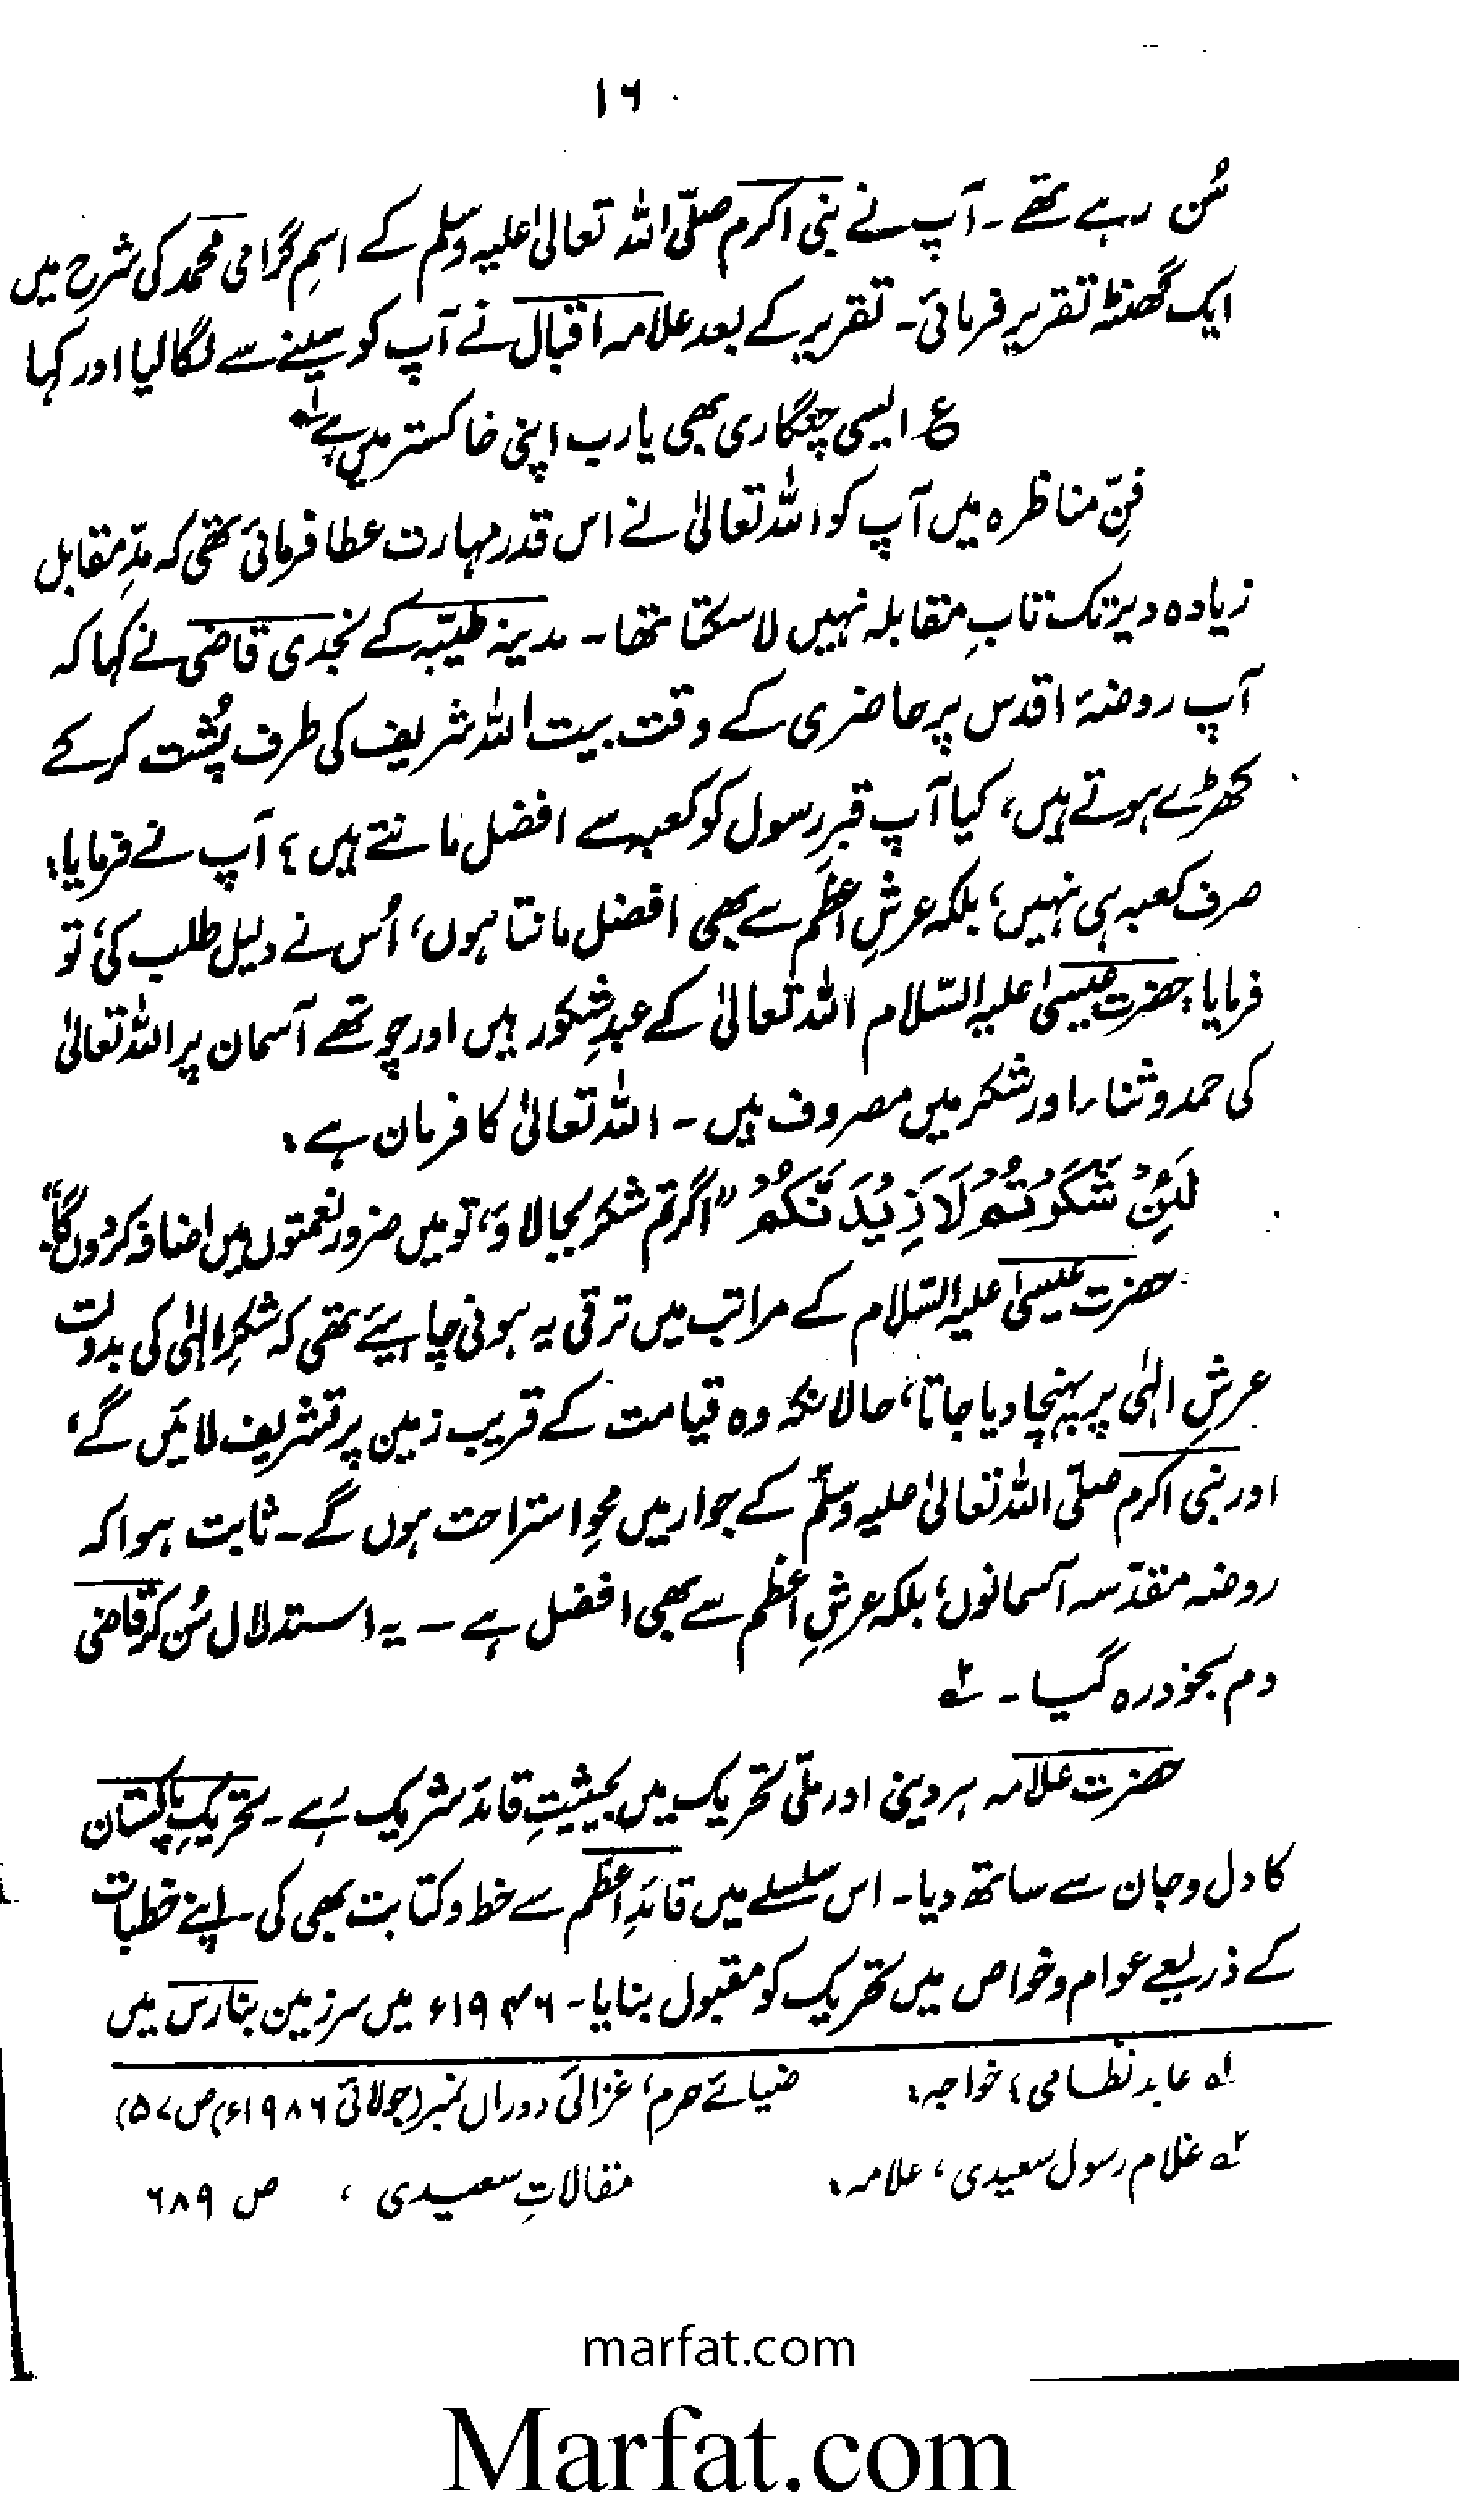 ۱۶
سُن رہے تھے۔ آپ نے نبی اکرم صلّی اللہ تعالیٰ علیہ وسلّم کے اسمِ گرامی محمد کی شرح میں
ایک گھنٹہ تقریر فرمائی۔ تقریر کے بعد علامہ اقبال نے آپ کو سینے سے لگا لیا اور کہا
ع ایسی چنگاری بھی یارب اپنی خاکستر میں ہے ؎۱
فنِّ مناظرہ میں آپ کو اللہ تعالیٰ نے اس قدر مہارت عطا فرمائی تھی کہ مدِّ مقابل
زیادہ دیر تک تابِ مقابلہ نہیں لا سکتا تھا۔ مدینہ طیّبہ کے نجدی قاضی نے کہا کہ
آپ روضۂ اقدس پر حاضری کے وقت بیت اللہ شریف کی طرف پُشت کر کے
کھڑے ہوتے ہیں، کیا آپ قبرِ رسول کو کعبہ سے افضل مانتے ہیں؟ آپ نے فرمایا:
صرف کعبہ ہی نہیں، بلکہ عرشِ اعظم سے بھی افضل مانتا ہوں، اُس نے دلیل طلب کی، تو
فرمایا: حضرت عیسیٰ علیہ السّلام اللہ تعالیٰ کے عبدِ شکور ہیں اور چوتھے آسمان پر اللہ تعالیٰ
کی حمد و ثناء اور شکر میں مصروف ہیں۔ اللہ تعالیٰ کا فرمان ہے:
لَئِنْ شَكَرْتُمْ لَاَزِيْدَنَّكُمْ "اگر تم شکر بجا لاؤ، تو میں ضرور نعمتوں میں اضافہ کروں گا۔"
حضرت عیسیٰ علیہ السّلام کے مراتب میں ترقی یہ ہونی چاہیئے تھی کہ شکرِ الٰہی کی بدولت
عرشِ الٰہی پر پہنچا دیا جاتا، حالانکہ وہ قیامت کے قریب زمین پر تشریف لائیں گے،
اور نبی اکرم صلّی اللہ تعالیٰ علیہ وسلّم کے جوار میں محوِ استراحت ہوں گے۔ ثابت ہوا کہ
روضہ مقدّسہ آسمانوں، بلکہ عرشِ اعظم سے بھی افضل ہے ۔ یہ استدلال سُن کر قاضی
دم بخود رہ گیا۔ ؎۲
حضرت علامہ ہر دینی اور ملّی تحریک میں بحیثیتِ قائد شریک رہے۔ تحریکِ پاکستان
کا دل و جان سے ساتھ دیا۔ اس سلسلے میں قائدِ اعظم سے خط و کتابت بھی کی۔ اپنے خطبات
کے ذریعے عوام و خواص میں تحریک کو مقبول بنایا۔ ۱۹۴۶ء میں سرزمین بنارس میں
؎۱ عابد نظامی، خواجہ: ضیائے حرم، غزالیٔ دوراں نمبر (جولائی ۱۹۸۶ء، ص ۵۷)
؎۲ غلام رسول سعیدی، علامہ: مقالاتِ سعیدی، ص ۶۸۹
marfat.com
Marfat.com